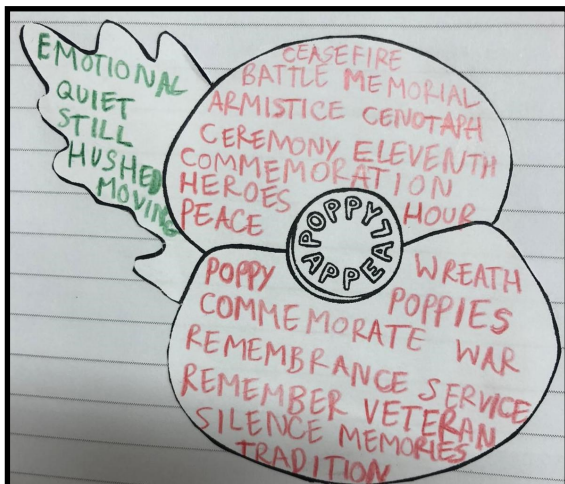 EMOTIONAL
QUIET
STILL
HUSHED
MOVING
CEASEFIRE
BATTLE MEMORIAL
ARMISTICE CENOTAPH
CEREMONY ELEVENTH
COMMEMORATION
HEROES
HOUR
PEACE
POPPY
APPEAL
POPPY
WREATH
POPPIES
COMMEMORATE WAR
REMEMBRANCE SERVICE
REMEMBER VETERAN
SILENCE MEMORIES
TRADITION